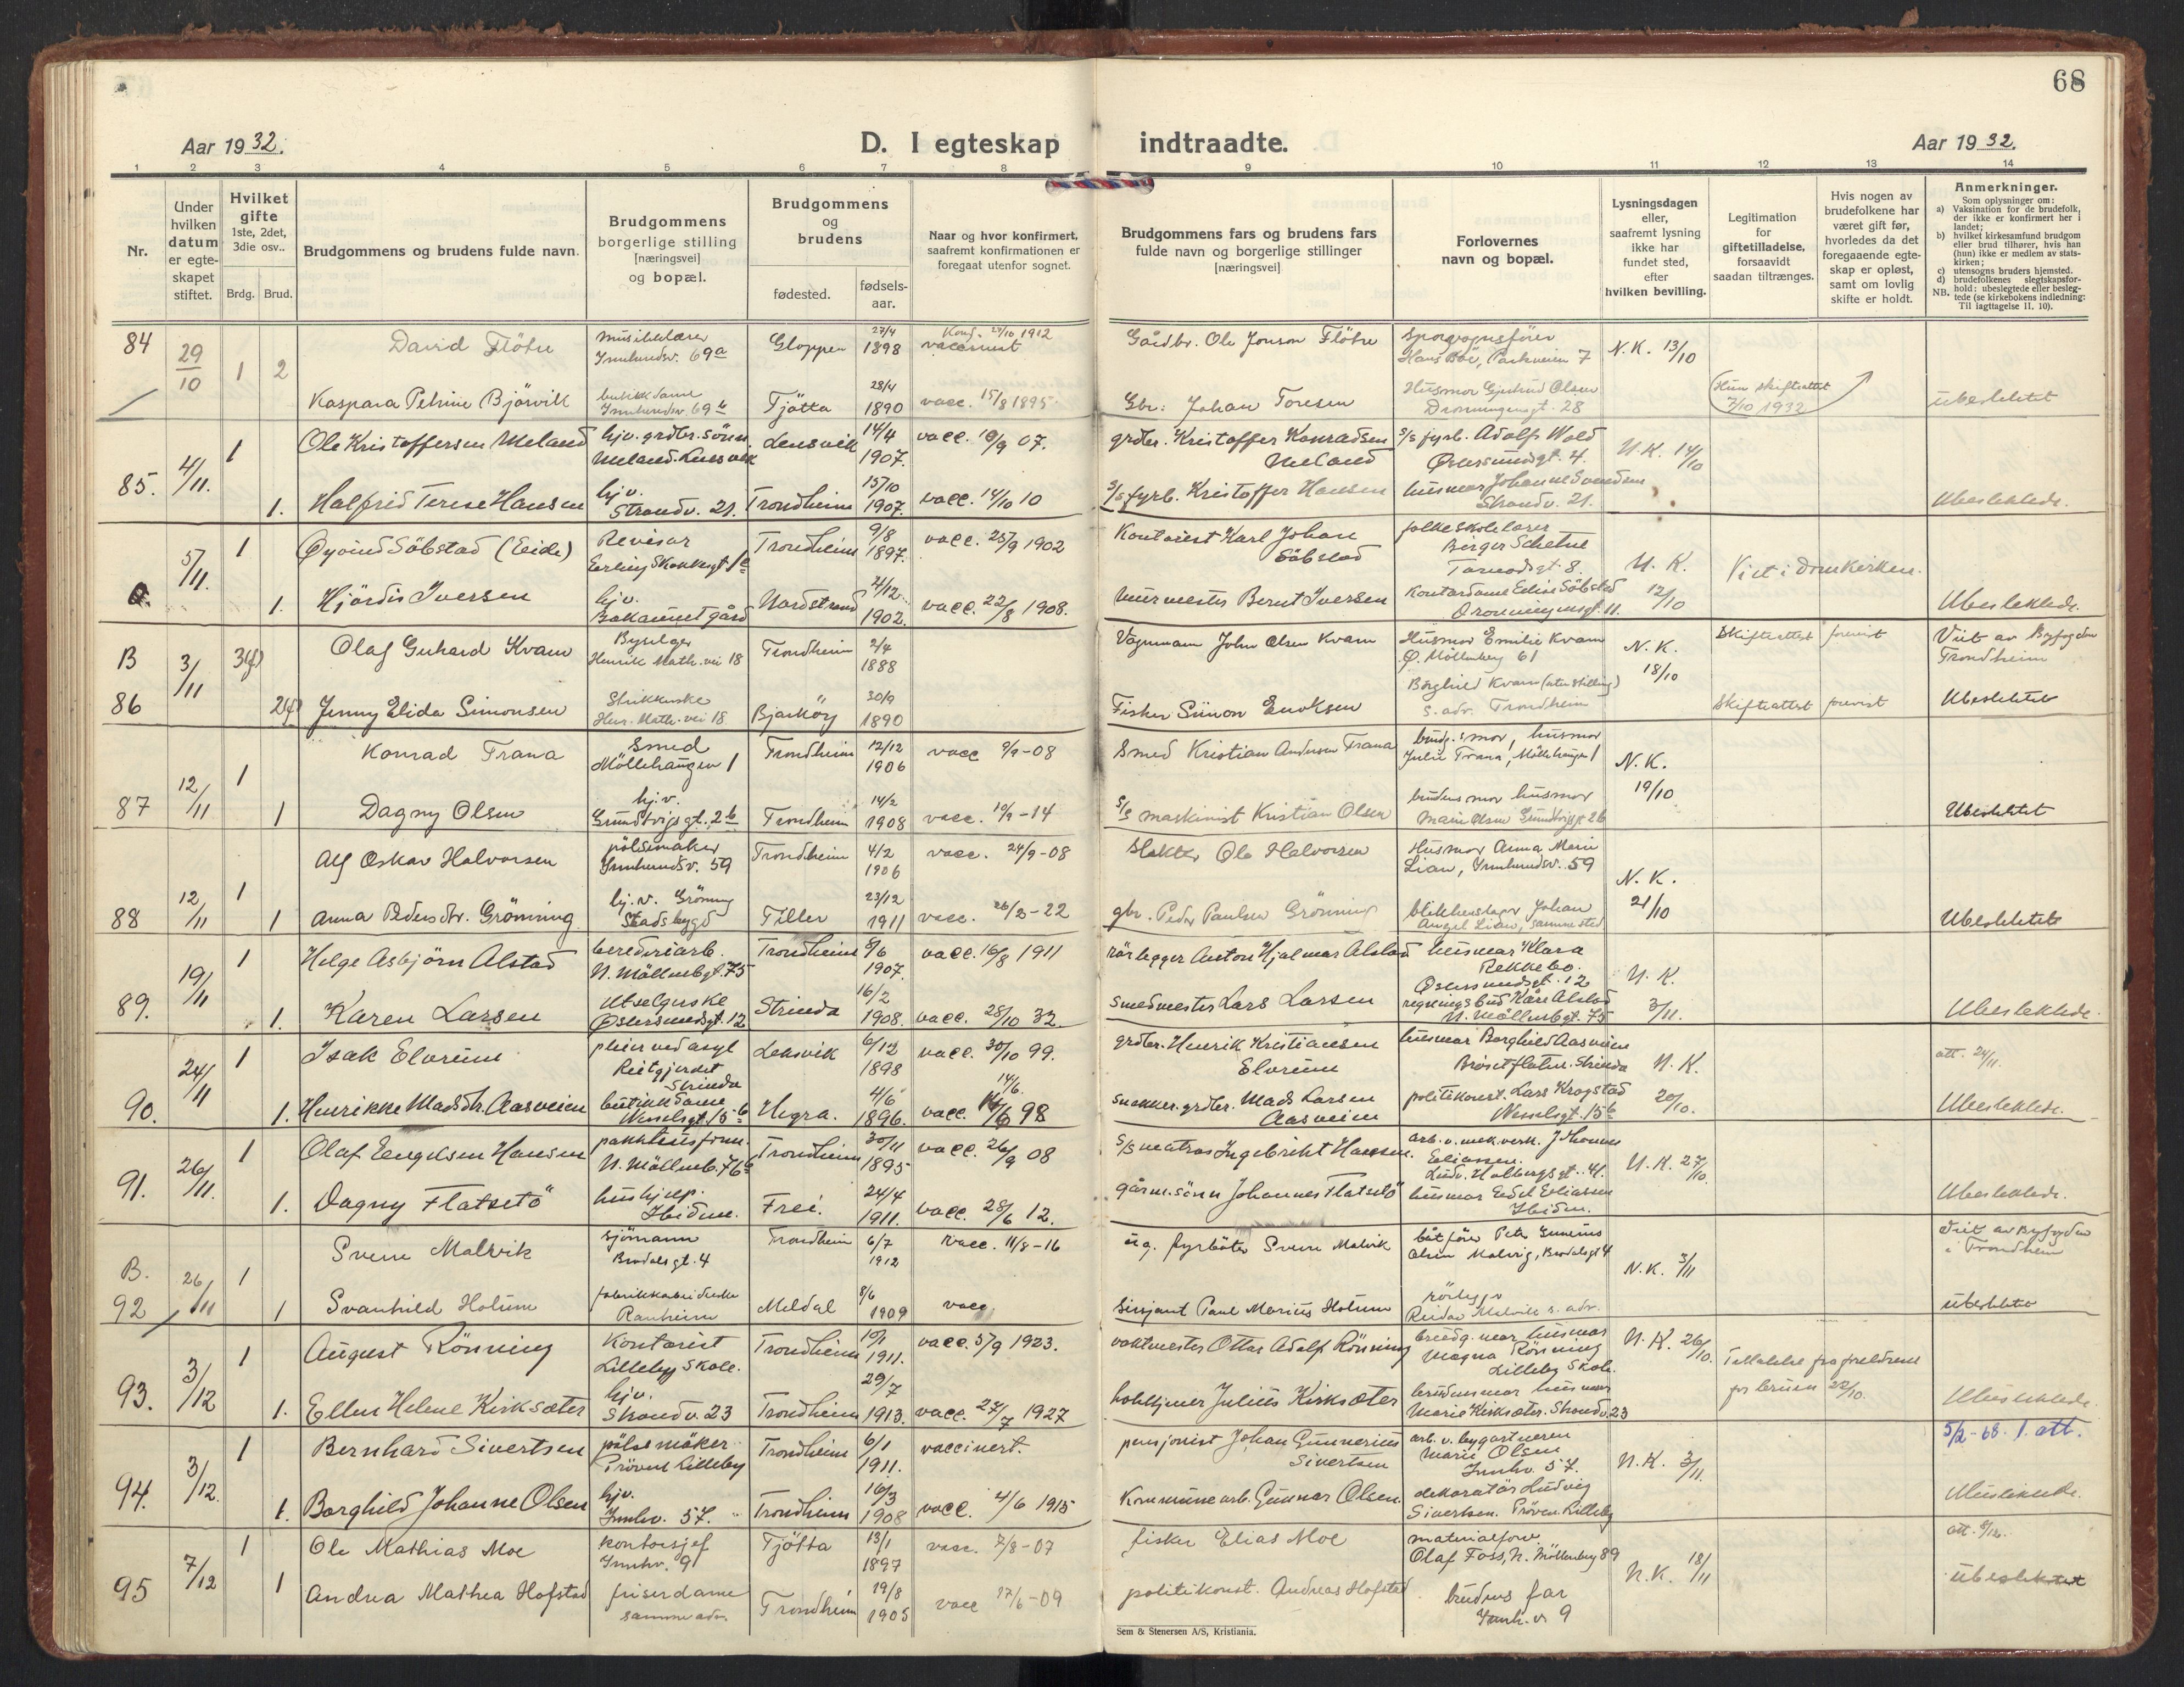 68
Aar 1932.
D. I egteskap indtraadte.
Aar 1932.
1 2 3 4 5 6 7 8 9 10 11 12 13 14
Nr.
Under hvilken datum er egteskapet stiftet.
Hvilket gifte 1ste, 2det, 3die osv..
Brdg. Brud.
Brudgommens og brudens fulde navn.
Brudgommens borgerlige stilling [næringsvei] og bopæl.
Brudgommens og brudens
fødested.
fødselsaar.
Naar og hvor konfirmert, saafremt konfirmationen er foregaat utenfor sognet.
Brudgommens fars og brudens fars fulde navn og borgerlige stillinger [næringsvei]
Forlovernes navn og bopæl.
Lysningsdagen eller, saafremt lysning ikke har fundet sted, efter hvilken bevilling.
Legitimation for giftetilladelse, forsaavidt saadan tiltrænges.
Hvis nogen av brudefolkene har været gift før, hvorledes da det foregaaende egteskap er opløst, samt om lovlig skifte er holdt.
Anmerkninger.
Som oplysninger om:
a) Vaksination for de brudefolk, der ikke er konfirmert her i landet;
b) hvilket kirkesamfund brudgom eller brud tilhører, hvis han (hun) ikke er medlem av statskirken;
c) utensogns bruders hjemsted.
d) brudefolkenes slegtskapsforhold: ubeslegtede eller beslegtede (se kirkebokens indledning: Til iagttagelse II. 10).
NB.
84 29/10 1 2 David Flötre musiklærer Innherredsv. 69a Gloppen 27/4 1898 Konf. 1912 vaccinert Gårdbr. Ole Jonson Flötre sporvognsfører Hans Bøe, Parkveien 7 N.K. 13/10
Kaspara Petrine Bjørvik butikkdame Innherredsv. 69b Tjøtta 28/4 1890 vacc. 15/8 1895 Gbr. Johan Toresen Husmor Gjertrud Olsen Dronningensgt. 28 Hun skifteattest 7/10 1932 ubeslektet
85. 4/11. 1 Ole Kristoffersen Meland hjv. grdbr. sönn. Meland. Lensvik Lensvik 14/4 1907. vacc. 10/9 07. grdbr. Kristoffer Konradsen Meland s/s fyrb. Adolf Wold Østersundsgt. 4. N.K. 14/10
1. Halfrid Terese Hansen hjv. Strandv. 21. Trondheim 15/10 1907. vacc. 14/10 10 s/s fyrb. Kristoffer Hansen husmor Johanne Svendsen Strandv. 21. Ubeslektede.
a. 5/11. 1 Øyvind Söbstad (Eide) Revisor Erling Skakkesgt 1c Trondheim 9/8 1897. vacc. 25/9 1902 Kontorist Karl Johan Söbstad folkeskolelærer Birger Schetne Tormodsgt. 8. N.K. 12/10 Viet i Domkirken.
1. Hjördis Iversen hjv. Bakaunet gård Nordstrand 21/12 1902. vacc. 22/8 1908. murmester Bernt Iversen Kontordame Eline Söbstad Dronningensgt. 11. Ubeslektede.
B 86 3/11 3(f) Olaf Gerhard Kvam Byselger Henrik Math. vei 18 Trondheim 2/4 1888 Vognmann John Olsen Kvam Husmor Emilie Kvam Ø. Möllenberg 61 N.K. 18/10 Skifteattest forevist Viet av Byfogden Trondheim
2(f) Jenny Elida Simonsen Strikkerske Hen. Math. vei 18 Bjarköy 30/9 1890 Fisker Simon Enoksen Borghild Kvam (uten stilling) s. adr. Trondheim Skifteattest forevist Ubeslektet
87 12/11 1 Konrad Trana Smed Möllehaugen 1 Trondheim 12/12 1906 vacc 9/9-08 Smed Kristian Andersen Trana brudg.s mor, husmor Julie Trana, Möllehaugen 1 N.K. 19/10
1 Dagny Olsen hj.v. Grundtvigs gt. 2b Trondheim 14/2 1908 vacc. 10/9-14 s/s maskinist Kristian Olsen brudens mor husmor Marie Olsen Grundtvigsgt 2b Ubeslektet
88 12/11 1 Alf Oskar Halvorsen pölsemaker Innherredsv. 59 Trondheim 4/2 1906 vacc. 24/9-08 Slakter Ole Halvorsen Husmor Anna Marie Lian, Innherredsv. 59 N.K. 21/10
1 Anna Pedersdtr. Grönning hj.v. Grönning Stadsbygd Tiller 23/12 1911 vacc. 26/2-22 gbr. Peder Paulsen Grönning blikkenslager Johan Angel Lian, samme sted Ubeslektet
89. 19/11 1 Helge Asbjörn Alstad beredriarb. N. Möllenbgt. 75 Trondheim 8/6 1907. vacc. 16/8 1911 rörlegger Anton Hjalmar Alstad husmor Klara Rekkebo. Østersundsgt. 12 N.K. 3/11.
1. Karen Larsen Utselgerske Östersundsgt. 12 Strinda 16/2 1908. vacc. 28/10 32. smedmester Lars Larsen regningsbud Kåre Alstad N. Möllenbgt. 75 Ubeslektede.
90. 24/11 1 Isak Elvrum pleier ved asyl Reitgjerdet Strinda Leksvik 6/12 1898 vacc. 30/10 99. grdbr. Henrik Kristiansen Elvrum husmor Borghild Aasveien Brøsetflaten. Strinda N.K. 20/10. att. 24/11
1. Henrikke Madsdtr. Aasveien butikkdame Wesselsgt. 15b Hegra. 4/6 1896. vacc. 14/6 98 snekker. grdbr. Mads Larsen Aasveien politikonst. Lars Krogstad Wesselsgt. 15b Ubeslektede.
91. 26/11. 1 Olaf Engelsen Hansen pakkhusform. N. Möllenb. 76a Trondheim 30/11 1895 vacc. 26/9 08 s/s matros Ingebrikt Hansen. arb. v. mek. verk. Johannes Eliassen. Ludv. Holbergsgt. 41. N.K. 27/10.
1. Dagny Flatsetö hushjelp. Ibidem. Frei. 24/4 1911. vacc. 28/6 12. gårm. sönn Johannes Flatsetö husmor Eidel Eliassen Ibidem. Ubeslektede.
B. 92 26/11 1 Sverre Malvik sjömann Brodalsgt. 4 Trondheim 6/7 1912 Vacc. 11/8-16 ug. fyrböter Sverre Malvik båtförer Peter Gunerius Olsen Malvig, Brodalsgt 4 N.K. 3/11 Viet av Byfogden i Trondheim
1 Svanhild Holum fabrikkarbeiderske Ranheim Meldal 8/6 1909 vacc. Sersjant Paul Marius Holum rörlegger Reidar Malvik s. adr. ubeslektet
93. 3/12 1 August Rönning Kontorist Lilleby Skole. Trondheim 10/1 1911. vacc. 5/9 1923. vaktmester Ottar Adolf Rönning brudg. mor husmor Magna Rönning Lilleby Skole. N.K. 26/10. Tillatelse fra foreldrene for bruden 22/10.
1. Ellen Helene Kirksæter hjv. Strandv. 23 Trondheim 29/7 1913. vacc. 27/7 1927 hovtjener Julius Kirksæter brudens mor husmor Marie Kirksæter. Strandv. 23 Ubeslektede.
94. 3/12. 1 Bernhard Sivertsen pölsemaker Pröven Lilleby Trondheim 6/1 1911. vaccinert. pensjonist Johan Gunnerius Sivertsen arb. v. bygartneren Marie Olsen Innhv. 57. N.K. 3/11. 5/2-68. 1. att.
1. Borghild Johanne Olsen hjv. Innhv. 57. Trondheim 16/3 1908 vacc. 4/6 1915 Kommunearb. Gunnar Olsen. dekoratör Ludvig Sivertsen. Pröven. Lilleby Ubeslektede.
95 7/12 1 Ole Mathias Moe kontorsjef Innhv. 9 Tjötta 13/1 1897 vacc. 7/8-07 fisker Elias Moe materialforv. Olaf Foss, N. Möllenberg 89 N.K. 18/11 att.
1 Andrea Mathea Hofstad friserdame samme adr. Trondheim 19/8 1905 vacc 17/6-09 politikonst. Andreas Hofstad brudens far Innh.v. 9 ubeslektet
Sem & Stenersen A/S, Kristiania.